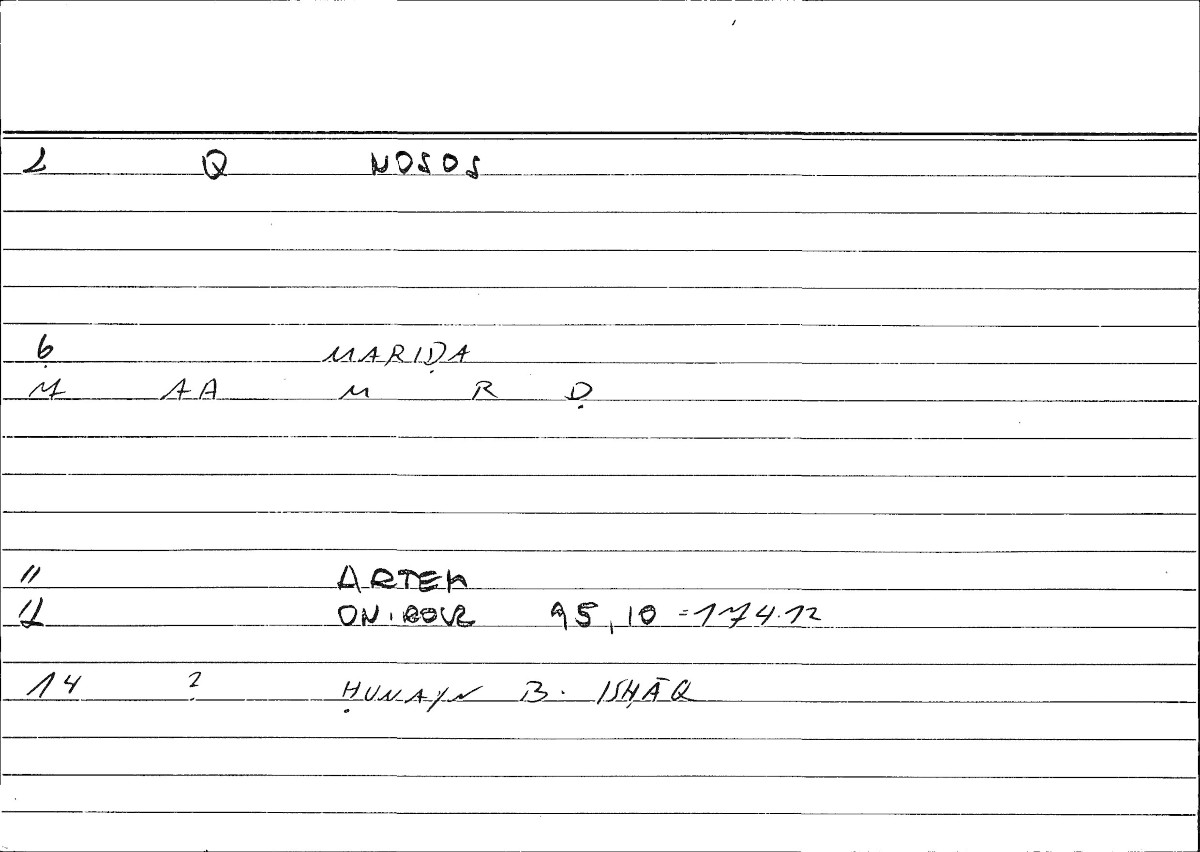 L Q NOSOS
6 MARIḌA
M AA M R Ḍ
11 ARTEM
ONIROCR 95,10 = 174.12
14 ? ḤUNAYN B. ISḤĀQ